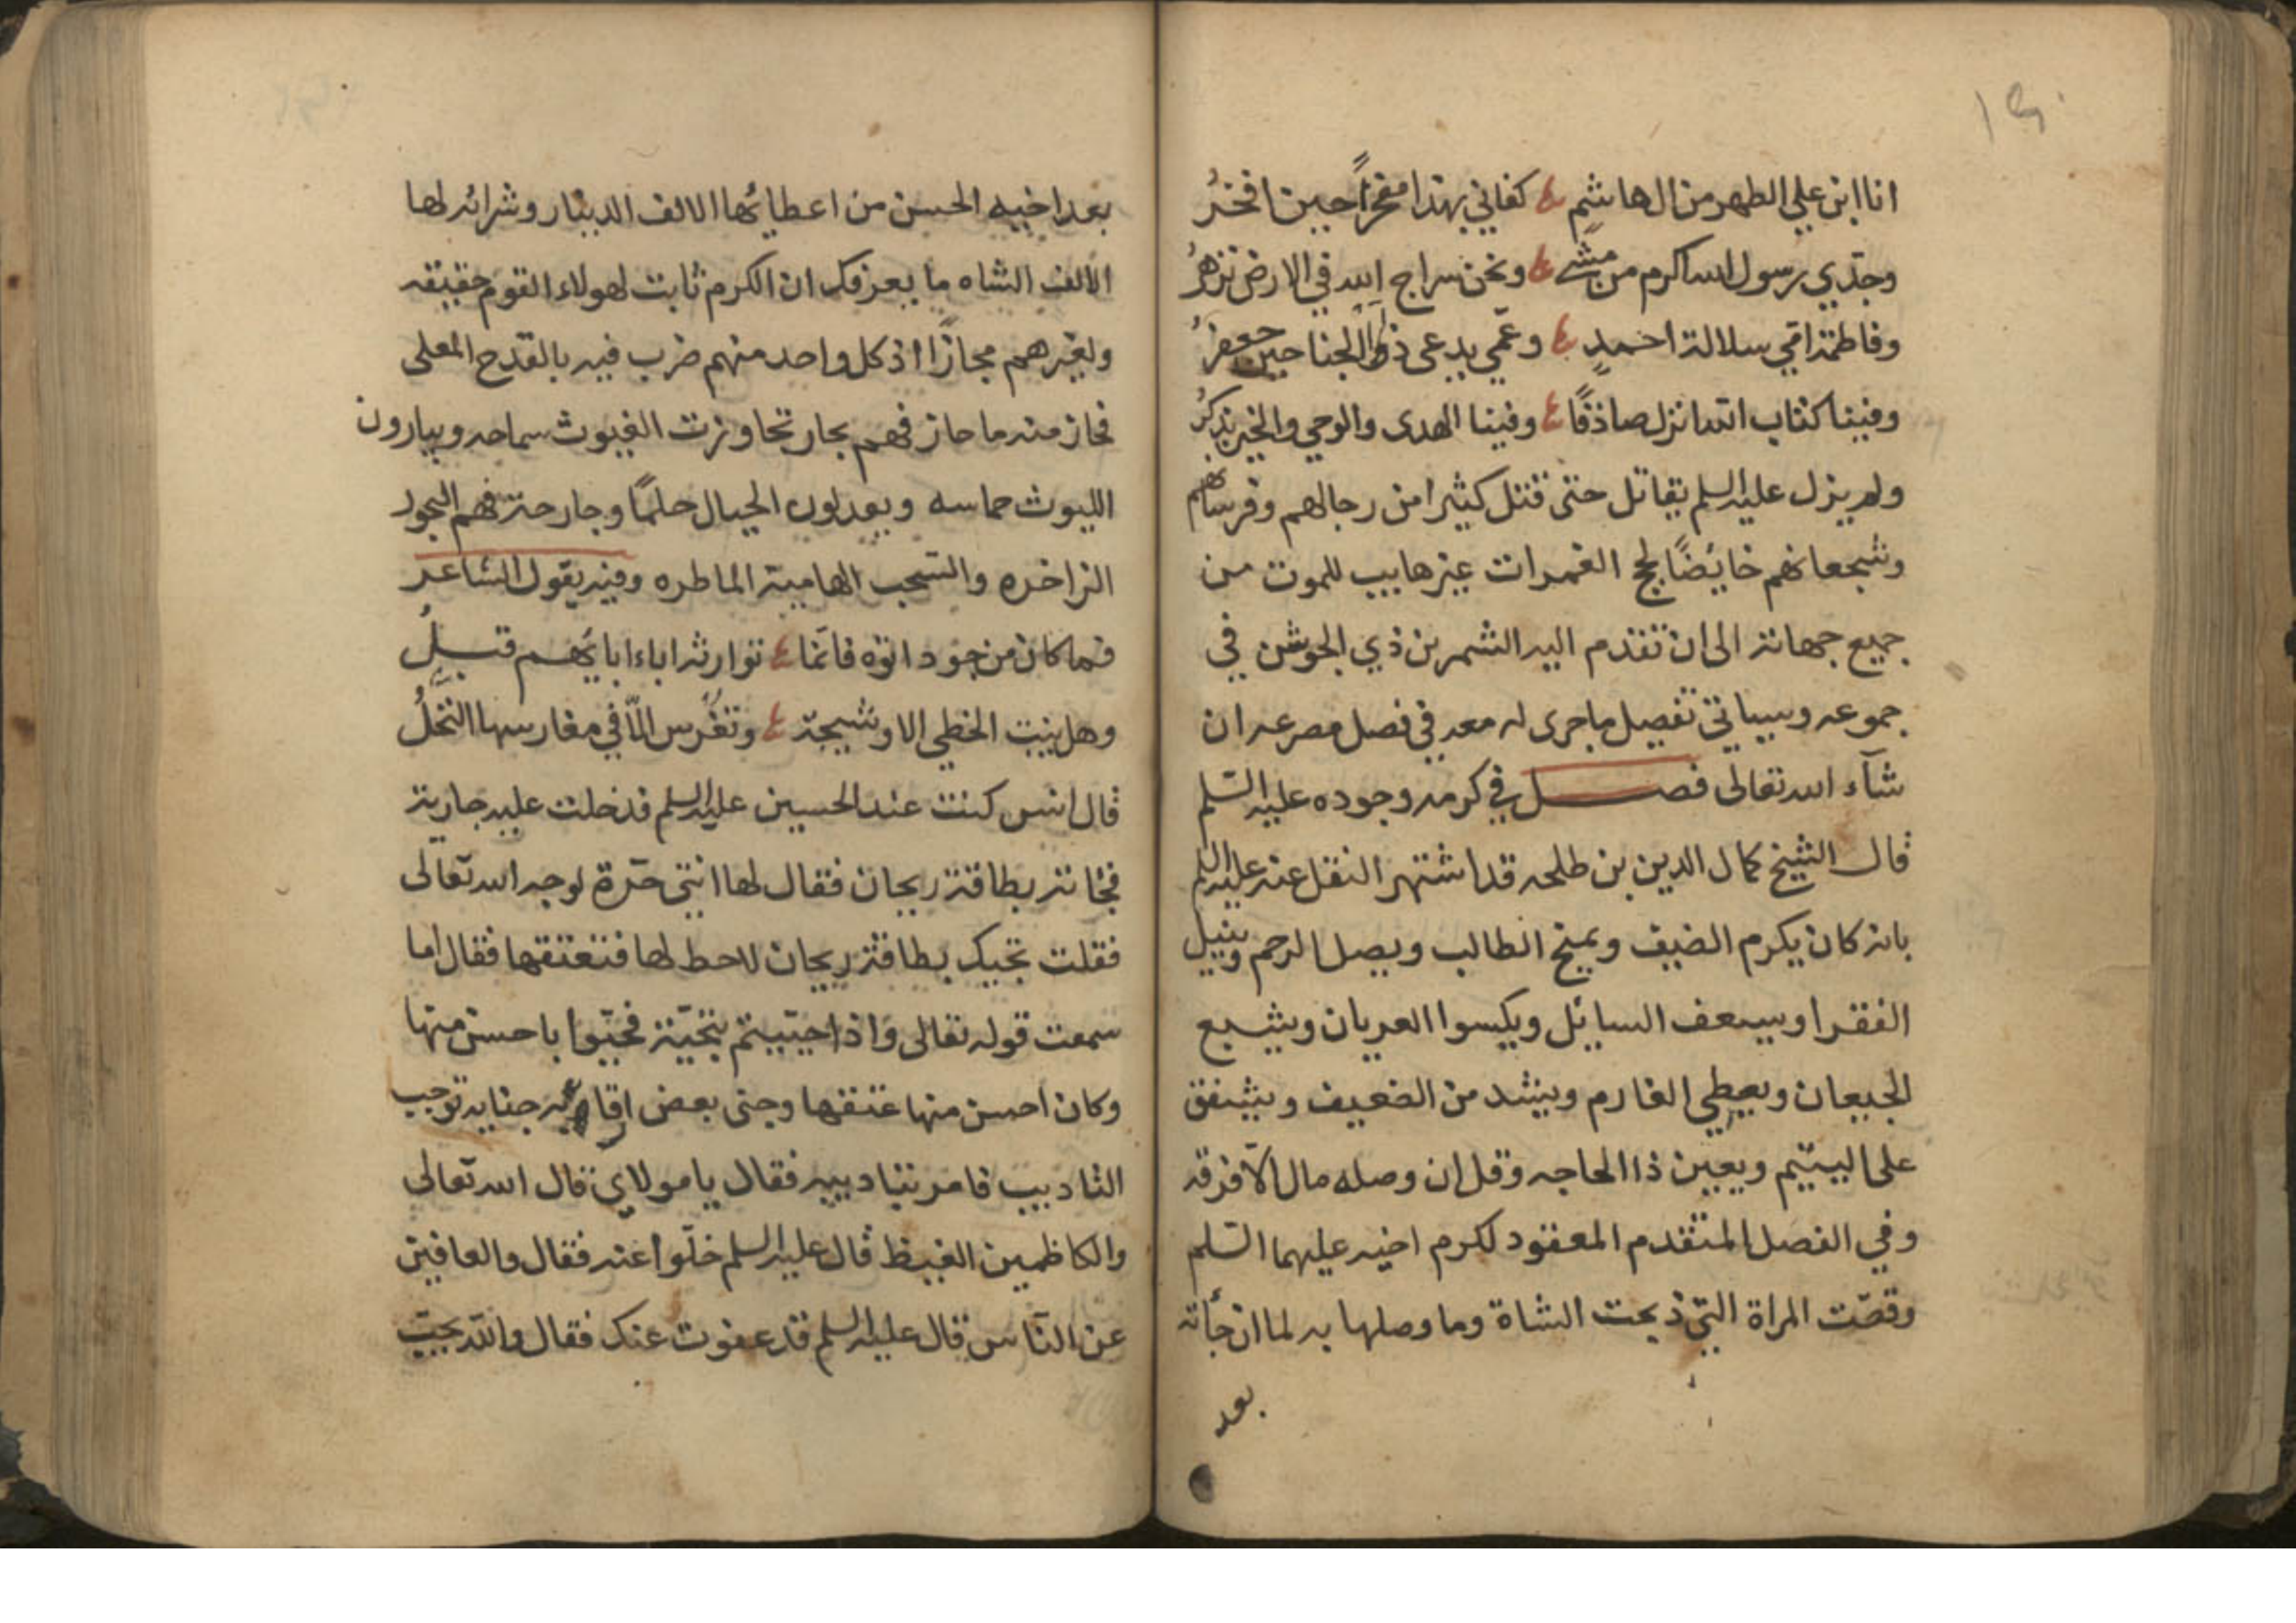 انا ابن علي الطهر من ال هاشم كفاني بهذا مفخرًا حين افخرُ
وجدّي رسول الله اكرم من مشى ونحن سراج الله في الارض نزهرُ
وفاطمة امّي سلالة احمدٍ وعمّي يدعى ذو الجناحين جعفرُ
وفينا كتاب الله انزل صادقًا وفينا الهدى والوحي والخير يذكرُ
ولم يزل عليه السلم يقاتل حتى قتل كثيرا من رجالهم وفرسانهم
وشجعانهم خايضًا لجج الغمرات غير هايب للموت من
جميع جهاته الى ان تقدم اليه الشمر بن ذي الجوشن في
جموعه وسياتي تفصيل ما جرى له معه في فصل مصرعه ان
شآء الله تعالى فصل في كرمه وجوده عليه السّلم
قال الشيخ كمال الدين بن طلحه قد اشتهر النقل عنه عليه السلم
بانه كان يكرم الضيف ويمنح الطالب ويصل الرحم وينيل
الفقرا ويسعف السايل ويكسوا العريان ويشبع
الجيعان ويعطي الغارم ويشد من الضعيف ويشفق
على اليتيم ويعين ذا الحاجه وقل ان وصله مال الّا فرقه
وفي الفصل المتقدم المعقود لكرم اخيه عليهما السّلم
وقصّت المراة التي ذبحت الشاة وما وصلها به لما ان جأته
بعد
بعد اخيه الحسن من اعطائها الالف الدينار وشرائه لها
الالف الشاه ما يعرفك ان الكرم ثابت لهولاء القوم حقيقه
ولغيرهم مجازًا اذ كل واحد منهم ضرب فيه بالقدح المعلى
فحاز منه ما حاز فهم بحار تجاوزت الغيوث سماحه ويبارون
الليوث حماسه ويعدلون الجبال حلمًا وجارحة فهم البحور
الزاخره والسّحب الهامية الماطره وفيه يقول الشاعر
فما كان من جود اتوه فانّما توارثه اباء ابائهم قبلُ
وهل ينبت الخطي الا وشيجة وتغرس الّا في مغارسها النّخلُ
قال انس كنت عند الحسين عليه السلم فدخلت عليه جارية
فجائته بطاقة ريحان فقال لها انتي حرّة لوجه الله تعالى
فقلت تجيك بطاقة ريحان لاحط لها فتعتقها فقال اما
سمعت قوله تعالى واذا حيّيتم بتحيّة فحيّوا باحسن منها
وكان احسن منها عتقها وجنى بعض جنايه توجب
التاديب فامر بتاديبه فقال يا مولاي قال الله تعالى
والكاظمين الغيظ قال عليه السلم خلّوا عنه فقال والعافين
عن النّاس قال عليه السلم قد عفوت عنك فقال والله يحبّ